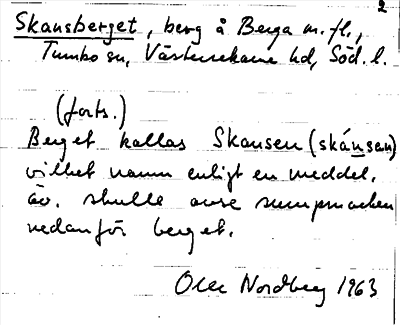 2
Skansberget, berg å Berga m.fl.,
Tumbo sn, Västerrekarne hd, Söd. l.
(forts.)
Berget kallas Skansen (skánsen)
vilket namn enligt en meddel.
äv. skulle avse sumpmarken
nedanför berget.
Olle Nordberg 1963